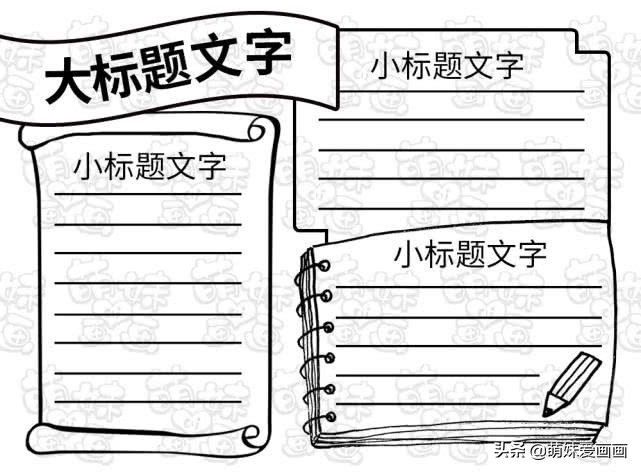 大标题文字
小标题文字
小标题文字
小标题文字
头条 @萌妹爱画画